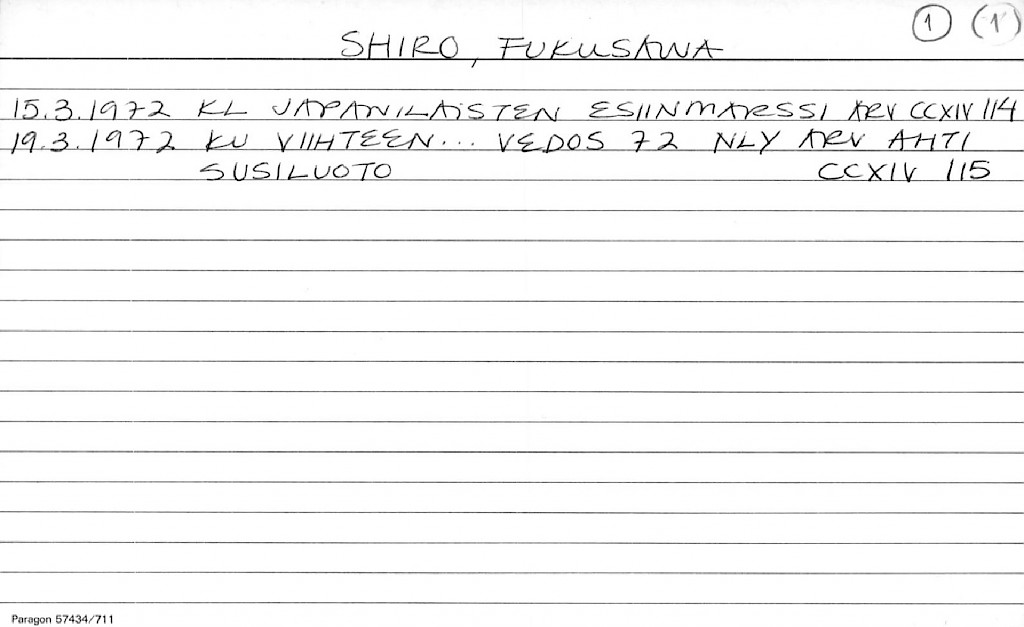 1 (1)
SHIRO, FUKUSAWA
15.3.1972 KL JAPANILAISTEN ESIINMARSSI ARV CCXIV 114
19.3.1972 KU VIIHTEEN... VEDOS 72 NLY ARV AHTI
SUSILUOTO CCXIV 115
Paragon 57434/711